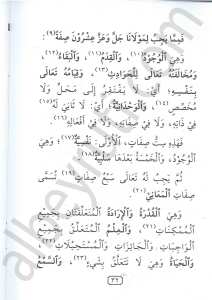 فَمِمَّا يَجِبُ لِمَوْلَانَا جَلَّ وَعَزَّ عِشْرُونَ صِفَةً(٩):
وَهِيَ الْوُجُودُ(١٠)، وَالْقِدَمُ(١١)، وَالْبَقَاءُ(١٢)،
وَمُخَالَفَتُهُ تَعَالَى لِلْحَوَادِثِ(١٣)، وَقِيَامُهُ تَعَالَى
بِنَفْسِهِ؛ أَيْ: لَا يَفْتَقِرُ إِلَى مَحَلٍّ وَلَا
مُخَصِّصٍ(١٤)، وَالْوَحْدَانِيَّةُ(١٥)؛ أَيْ: لَا ثَانِيَ لَهُ
فِي ذَاتِهِ، وَلَا فِي صِفَاتِهِ، وَلَا فِي أَفْعَالِهِ(١٦).
فَهَذِهِ سِتُّ صِفَاتٍ، الْأُولَى نَفْسِيَّةٌ(١٧)؛ وَهِيَ
الْوُجُودُ، وَالْخَمْسَةُ بَعْدَهَا سَلْبِيَّةٌ(١٨).
ثُمَّ يَجِبُ لَهُ تَعَالَى سَبْعُ صِفَاتٍ(١٩) تُسَمَّى
صِفَاتِ الْمَعَانِي(٢٠).
وَهِيَ: الْقُدْرَةُ وَالْإِرَادَةُ الْمُتَعَلِّقَتَانِ بِجَمِيعِ
الْمُمْكِنَاتِ(٢١)، وَالْعِلْمُ الْمُتَعَلِّقُ بِجَمِيعِ
الْوَاجِبَاتِ وَالْجَائِزَاتِ وَالْمُسْتَحِيلَاتِ(٢٢)،
وَالْحَيَاةُ؛ وَهِيَ لَا تَتَعَلَّقُ بِشَيْءٍ(٢٣)، وَالسَّمْعُ
٣٢